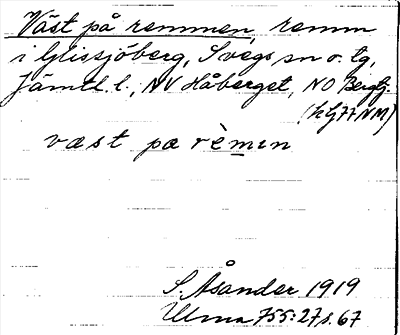 Väst på remmen, remm
i Glissjöberg, Svegs sn o. tg,
Jämtl. l., NV Håberget, NO Bergtj.
(k GJ77NM)
væst pæ rèmın
S. Åsander 1919
Ulma 755:27 s. 67